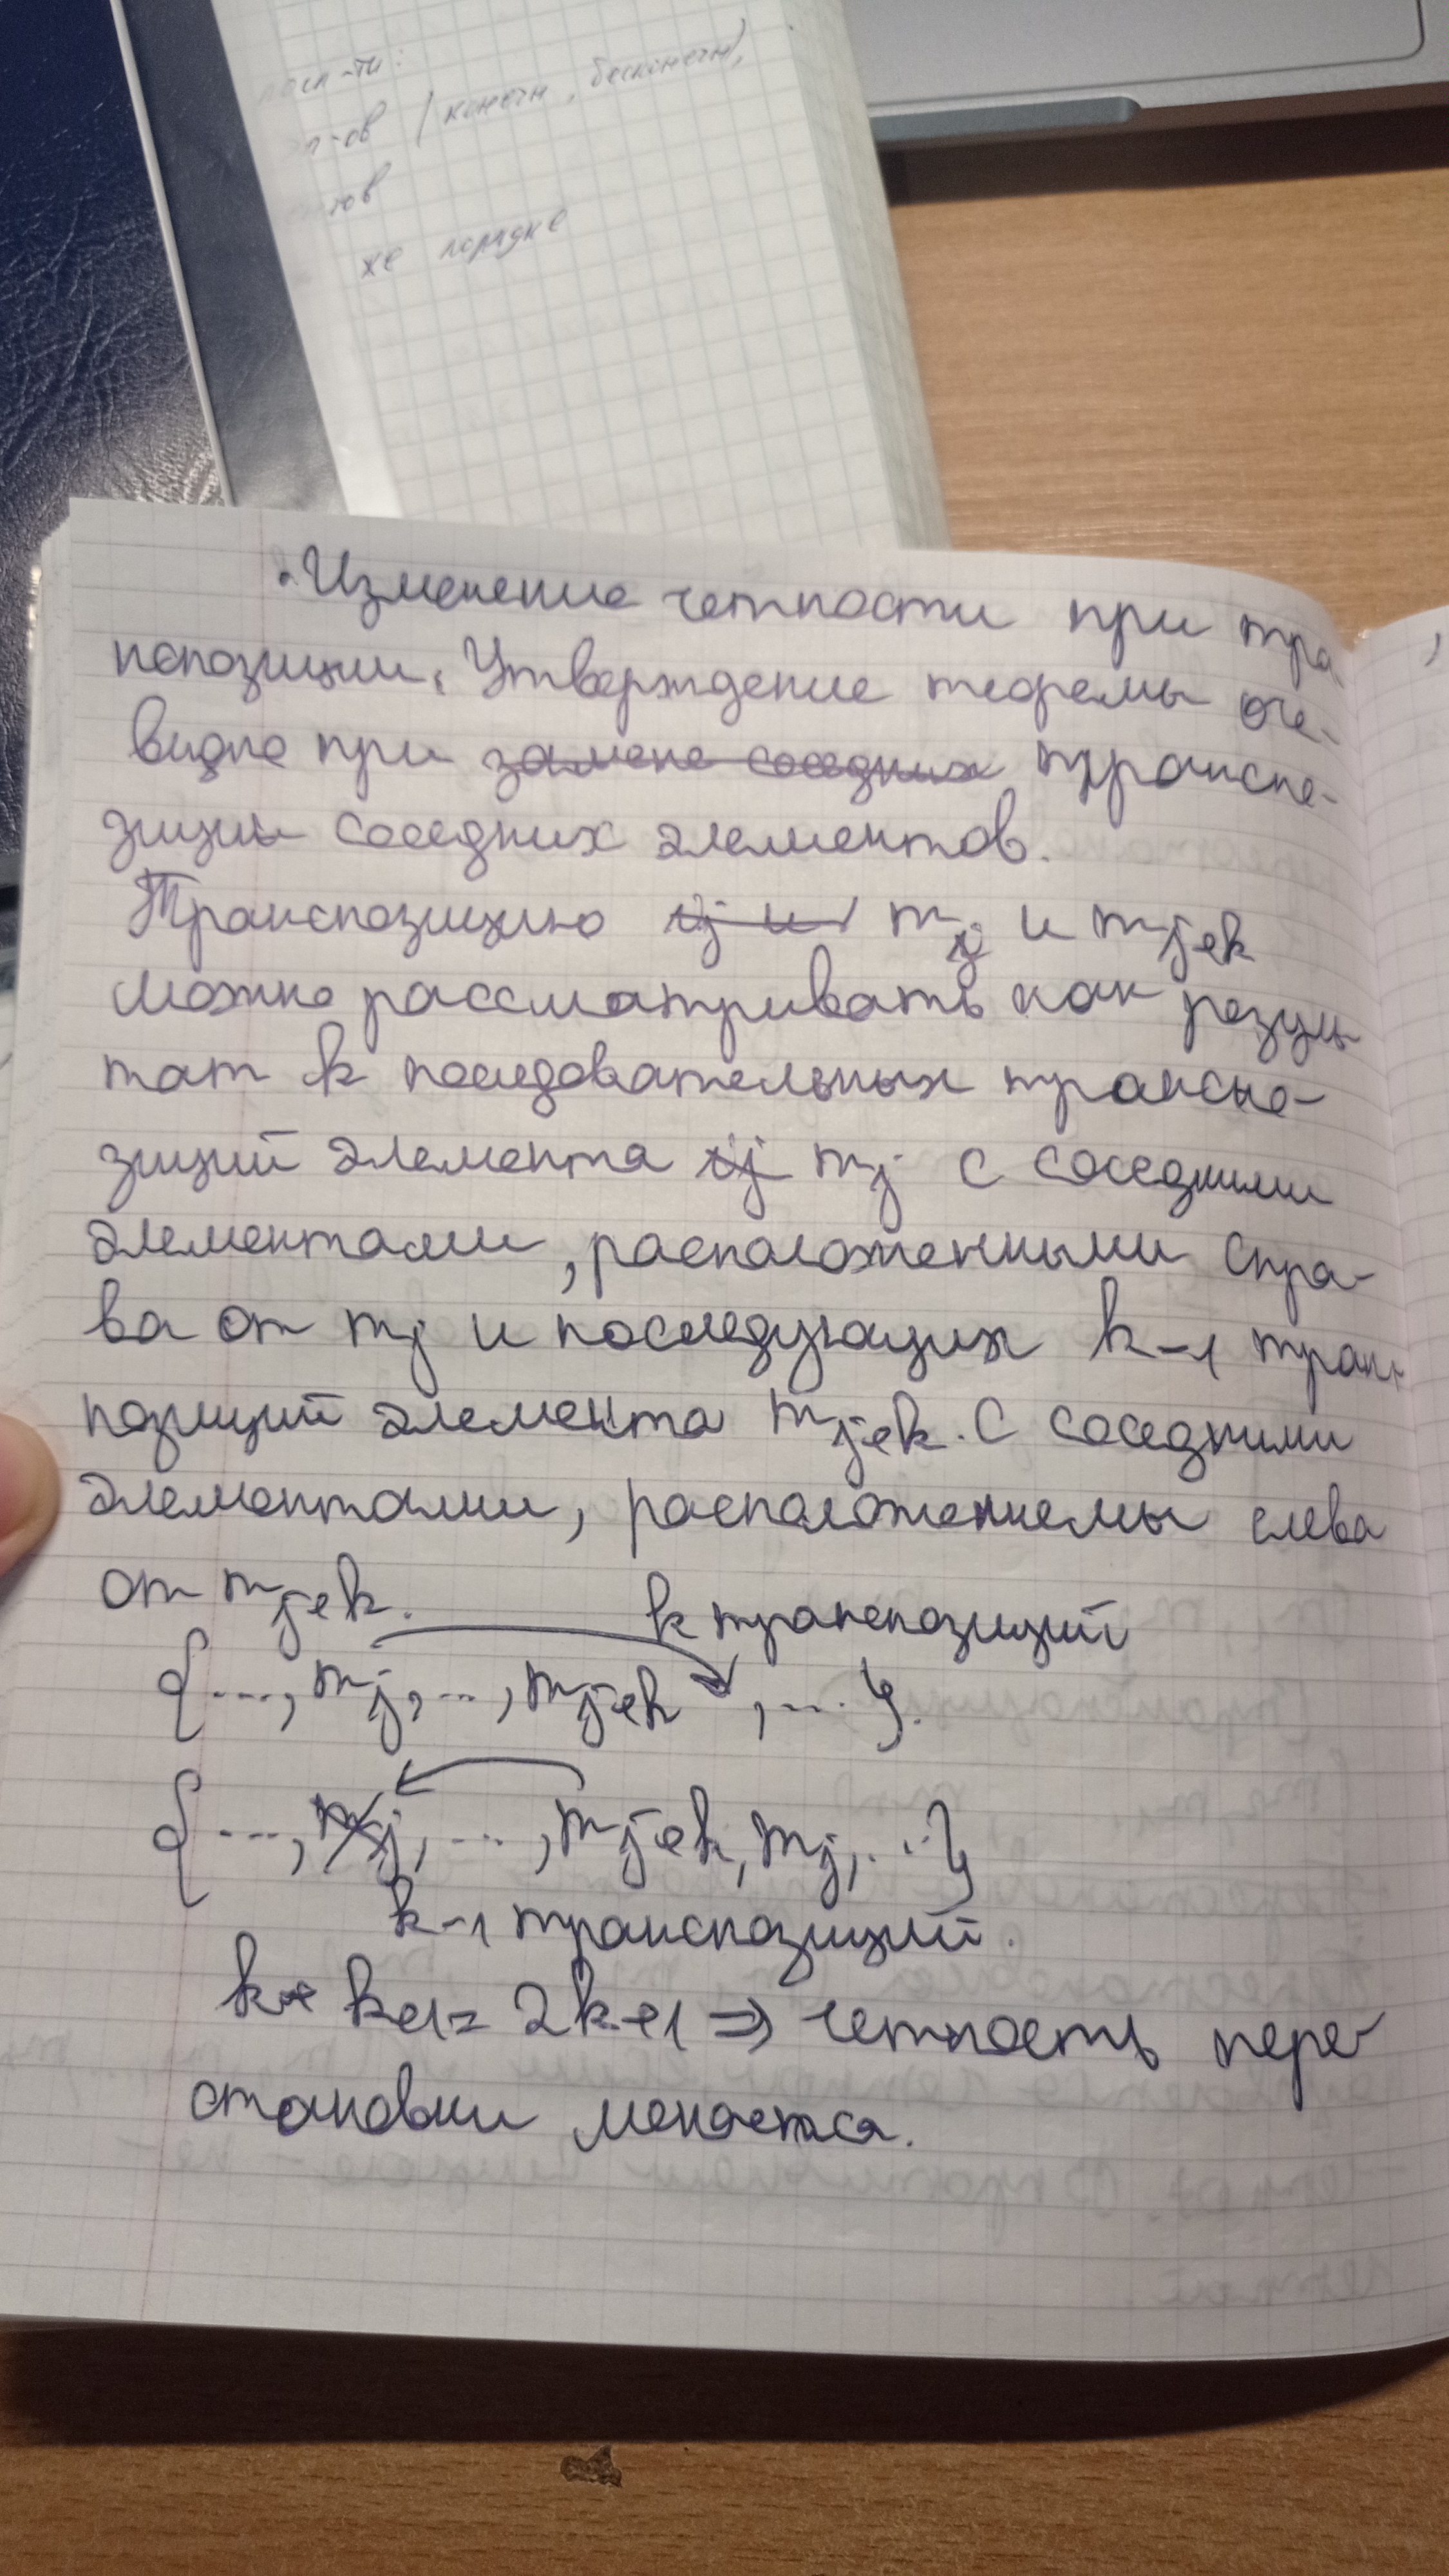 (конечн, бесконечн)
же порядке
Изменение четности при тра
нспозиции. Утверждение теоремы оче-
видно при замене соседних транспо-
зиции соседних элементов.
Транспозицию ij и m_j и m_j+k
можно рассматривать как резуль
тат k последовательных транспо-
зиций элемента ij m_j с соседними
элементами, расположенными спра-
ва от m_j и последующих k-1 транс
позиций элемента m_j+k. с соседними
элементами, расположенемы слева
от m_j+k.
k транспозиций
{..., m_j, ..., m_j+k , ...}.
{..., m_j, ..., m_j+k, m_j, ...}
k-1 транспозиций.
k+ k+1= 2k+1 => четность пере-
становки меняется.